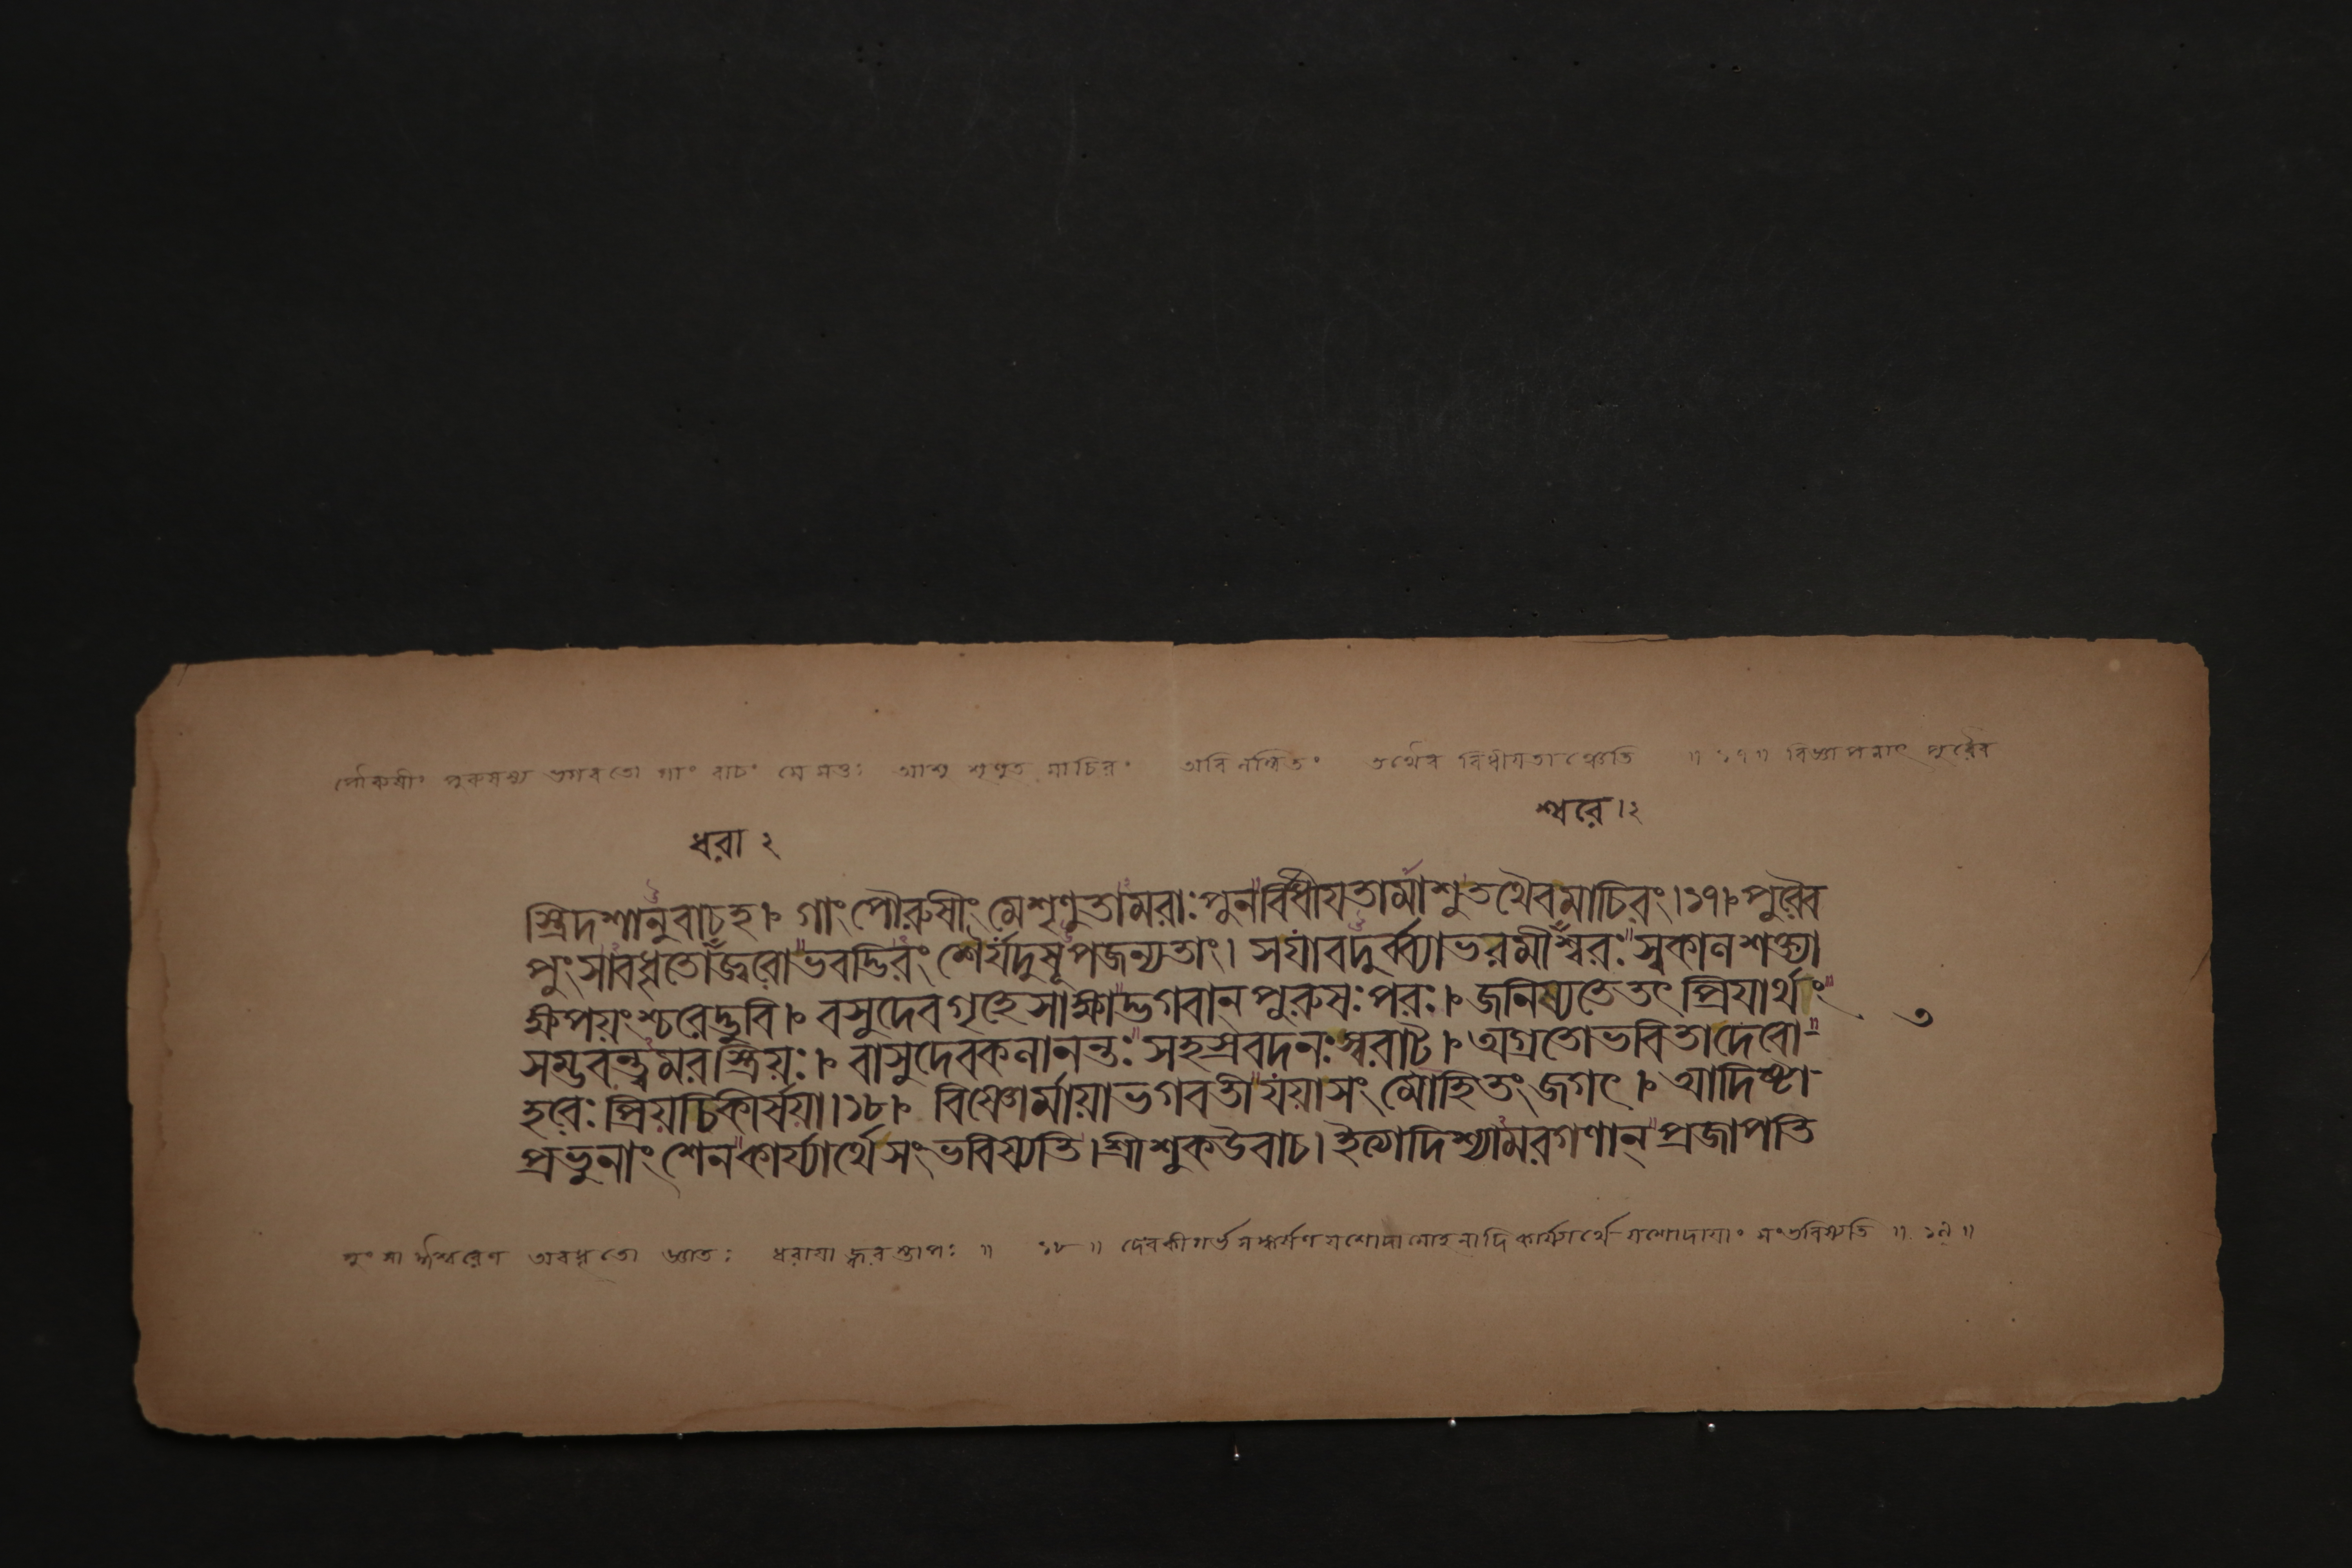 পৌরুষীং পুরুষস্য ভগবতো গাং বাচং মে মত্তঃ আশু শৃণুত মাচিরং অবিলম্বিতং তথৈব বিধীয়তাঞ্চেতি ॥ ১৭ ॥ বিজ্ঞাপনাৎ পূর্বৈব
শ্বরে ।২
ধরা ২
স্ত্রিদশানুবাচহ।৮ গাংপৌরুষীংমেশৃণুতামরাঃপুনর্বিধীয়তামাশুতথৈবমাচিরং।১৭।৮পুরৈব
পুংসাবধৃতোজ্বরোভবদ্ভিরংশৈর্যদুষূপজন্যতাং। সযাবদুর্ব্ব্যাভরমীশ্বরঃস্বকালশক্ত্যা
ক্ষপয়ংশ্চরেদ্ভুবি।৮ বসুদেবগৃহেসাক্ষাদ্ভগবানপুরুষঃপরঃ।৮জনিষ্যতেতৎপ্রিয়ার্থং
৩
সম্ভবন্ত্বমরস্ত্রিয়ঃ।৮ বাসুদেবকলানন্তঃসহস্রবদনঃস্বরাট।৮অগ্রতোভবিতাদেবো-
হরেঃপ্রিয়চিকীর্ষয়া।১৮।৮ বিষ্ণোর্মায়াভগবতীযয়াসংমোহিতংজগৎ।৮আদিষ্টা-
প্রভুনাংশেনকার্য্যার্থেসংভবিষ্যতি।শ্রীশুকউবাচ।ইত্যাদিশ্যামরগণানপ্রজাপতি
পুংসা ঈশ্বরেণ অবধৃতো জ্ঞাতঃ ধরায়া জ্বরস্তাপঃ ॥ ১৮ ॥ দেবকীগর্ভসঙ্কর্ষণযশোদামোহনাদিকার্য্যার্থে যশোদায়াং সংভবিষ্যতি ॥ ১৯ ॥